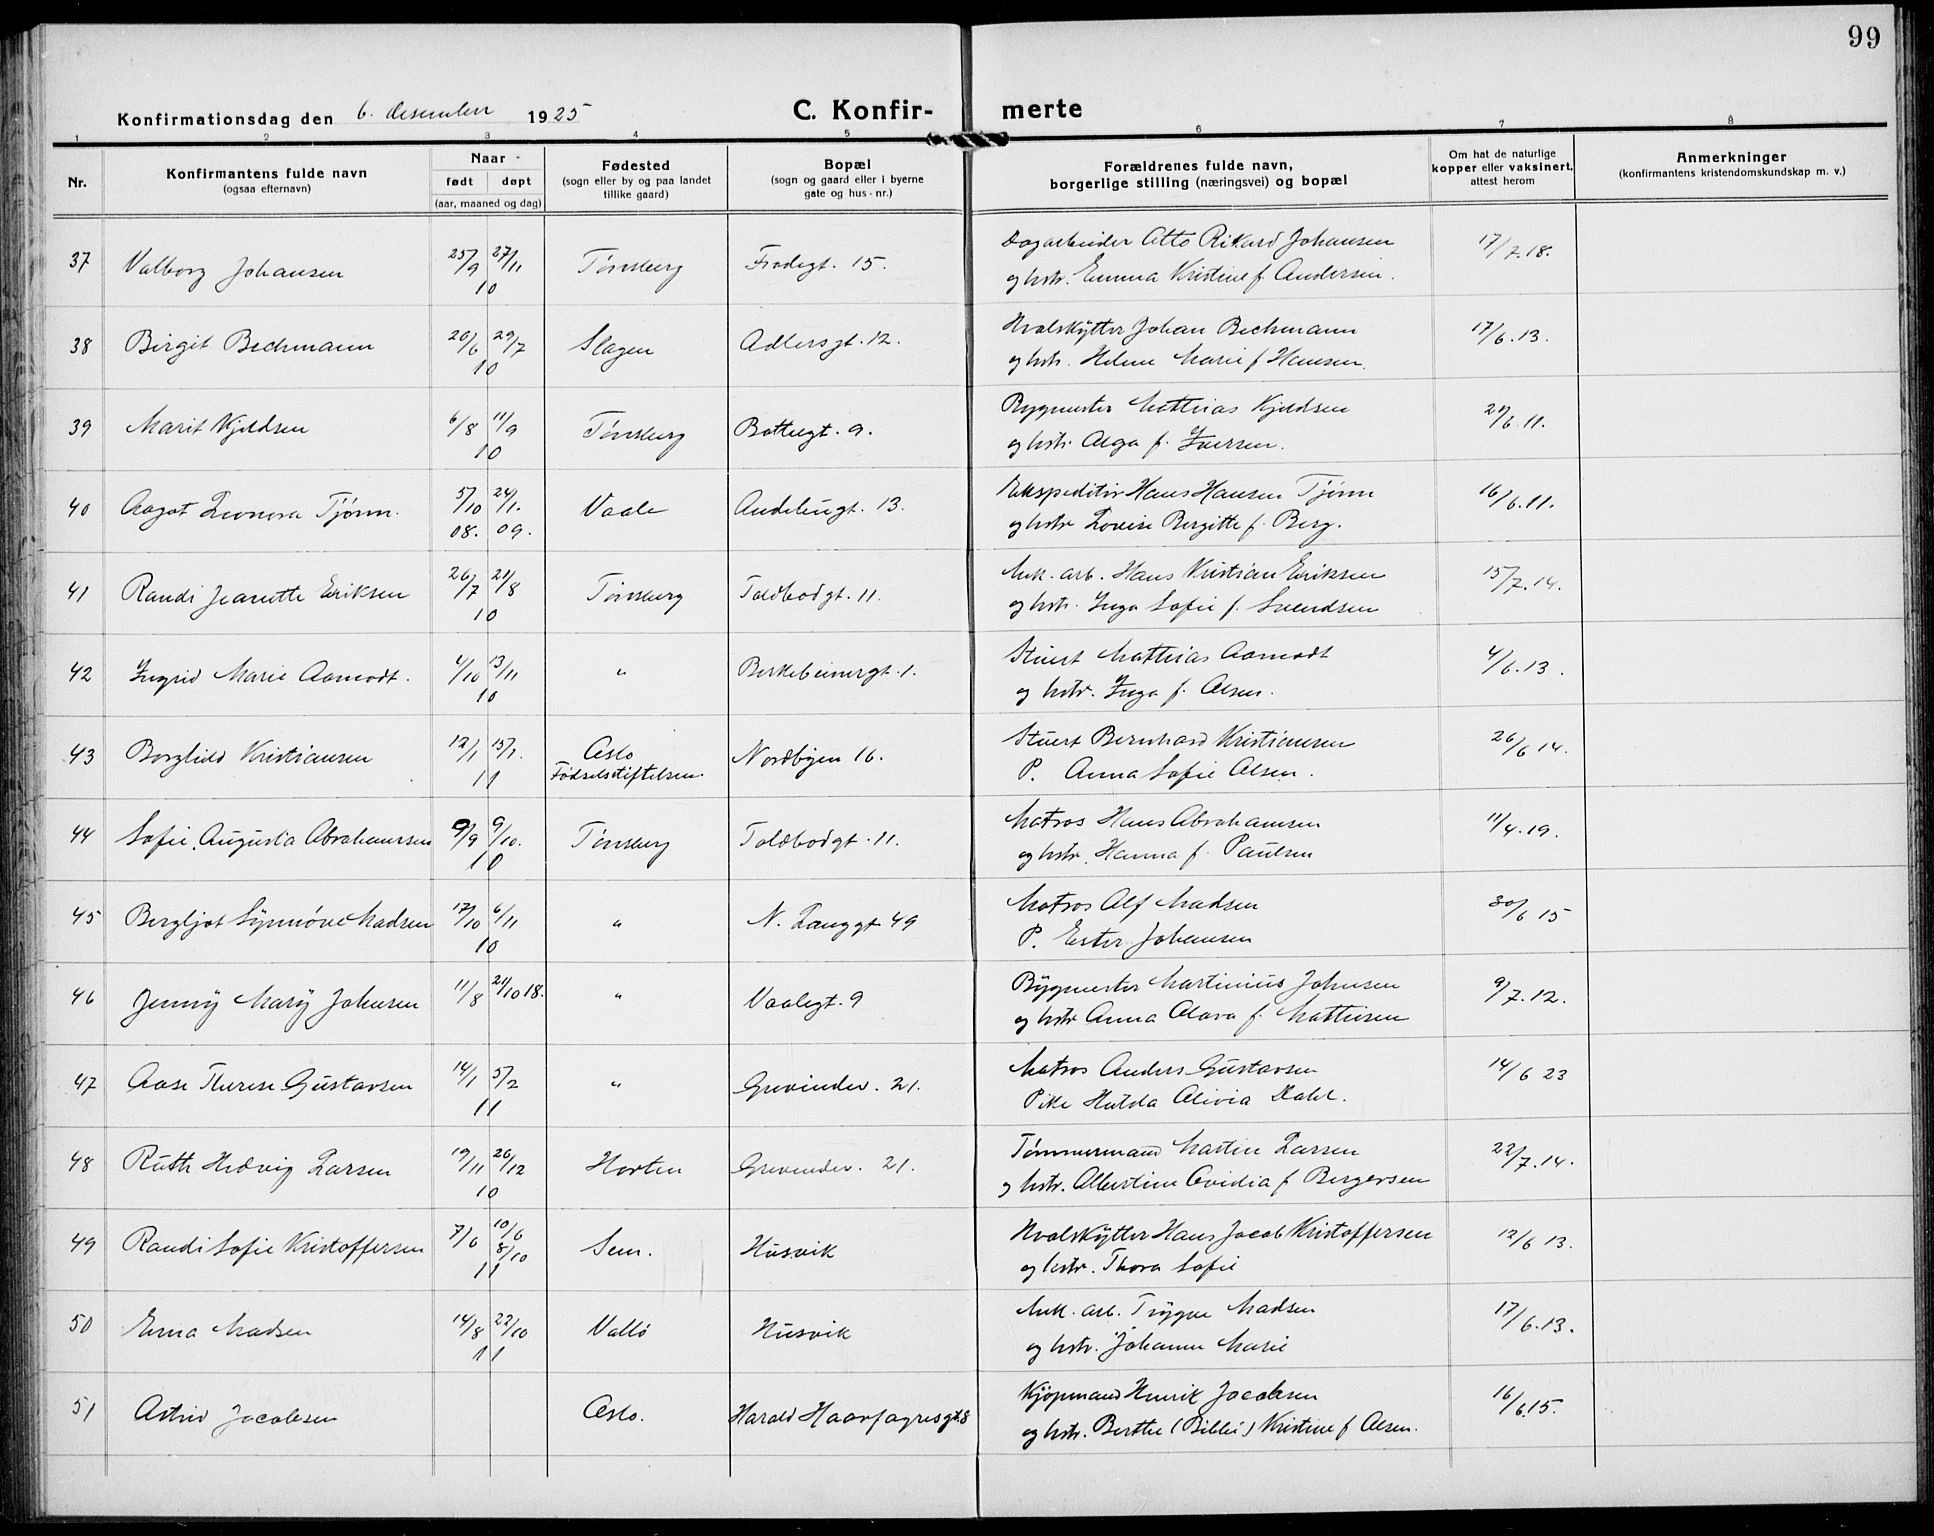 99
Konfirmationsdag den 6. desember 1925 C. Konfir- merte
1 2 3 4 5 6 7 8
Nr. Konfirmantens fulde navn (ogsaa efternavn) Naar født døpt (aar, maaned og dag) Fødested (sogn eller by og paa landet tillike gaard) Bopæl (sogn og gaard eller i byerne gate og hus-nr.) Forældrenes fulde navn, borgerlige stilling (næringsvei) og bopæl Om hat de naturlige kopper eller vaksinert, attest herom Anmerkninger (konfirmantens kristendomskundskap m. v.)
37 Valborg Johansen 25/9 27/11 10 Tønsberg Frodegt. 15. Dagarbeider Otto Rikard Johansen 17/7.18.
og hstr. Emma Kristine f. Andersen.
38 Birgit Bechmann 20/6 29/7 10 Slagen Adlersgt. 12. Hvalskytter Johan Bechmann 17/6.13.
og hstr. Helene Marie f Hansen.
39 Marit Kjeldsen 6/8 11/9 10 Tønsberg Bottengt. 9. Bygmester Mathias Kjeldsen 29/6.11.
og hstr. Olga f. Iversen.
40 Aagot Leonora Tjønn. 5/10 24/1. 08. 09. Vaale Andebugt. 13. Ekspeditør Hans Hansen Tjønn 16/6.11.
og hstr Lovise Bergitte f. Berg.
41 Randi Jeanette Eriksen 26/7 21/8 10 Tønsberg Toldbodgt. 11. Mek. arb. Hans Kristian Eriksen 15/7.14.
og hstr. Inga Sofie f. Svendsen
42 Ingrid Marie Aamodt. 4/10 13/11 10 " Birkebeinergt. 1. Stuert Mathias Aamodt 4/6.13.
og hstr. Inga f. Olsen.
43 Borghild Kristiansen 12/1 15/1. 11 Oslo Fødselsstiftelsen. Nordbyen 16. Stuert Bernhard Kristiansen 26/6 14.
P. Anna Sofie Olsen.
44 Sofie Augusta Abrahamsen 9/9 9/10. 10 Tønsberg Toldbodgt. 11. Matros Hans Abrahamsen 11/4.19.
og hstr. Hanna f. Paulsen
45 Bergljot Synnøve Madsen 17/10 6/11 10 " N. Langgt 49 Matros Alf Madsen 30/6 15
P. Ester Johansen
46 Jenny Mary Johnsen 11/8 21/10 18. " Vaalegt. 9 Bygmester Martinius Johnsen 9/7.12.
og hstr Anna Olava f. Mathisen
47 Aase Therese Gustavsen 14/1 5/2 11 " Grevindev. 21. Matros Anders Gustavsen 14/6 23
Pike Hulda Olivia Dahl.
48 Ruth Hedvig Larsen 19/11 26/12 10 Horten Grevindev. 21. Tømmermand Martin Larsen 22/7.14.
og hstr. Albertine Ovidia f Bergersen
49 Randi Sofie Kristoffersen 7/6 10/6 8/10 11 Sem. Husvik Hvalskytter Hans Jacob Kristoffersen 12/6 13.
og hstr. Thora Sofie
50 Erna Madsen 14/8 22/10 11 Vallø Husvik Mek. arb. Trygve Madsen 17/6.13.
og hstr. Johanne Marie
51 Astrid Jacobsen Oslo. Harald Haarfagresgt. 8 Kjøpmand Henrik Jacobsen 16/6.15.
og hstr. Berthe (Billie) Kristine f Olsen.